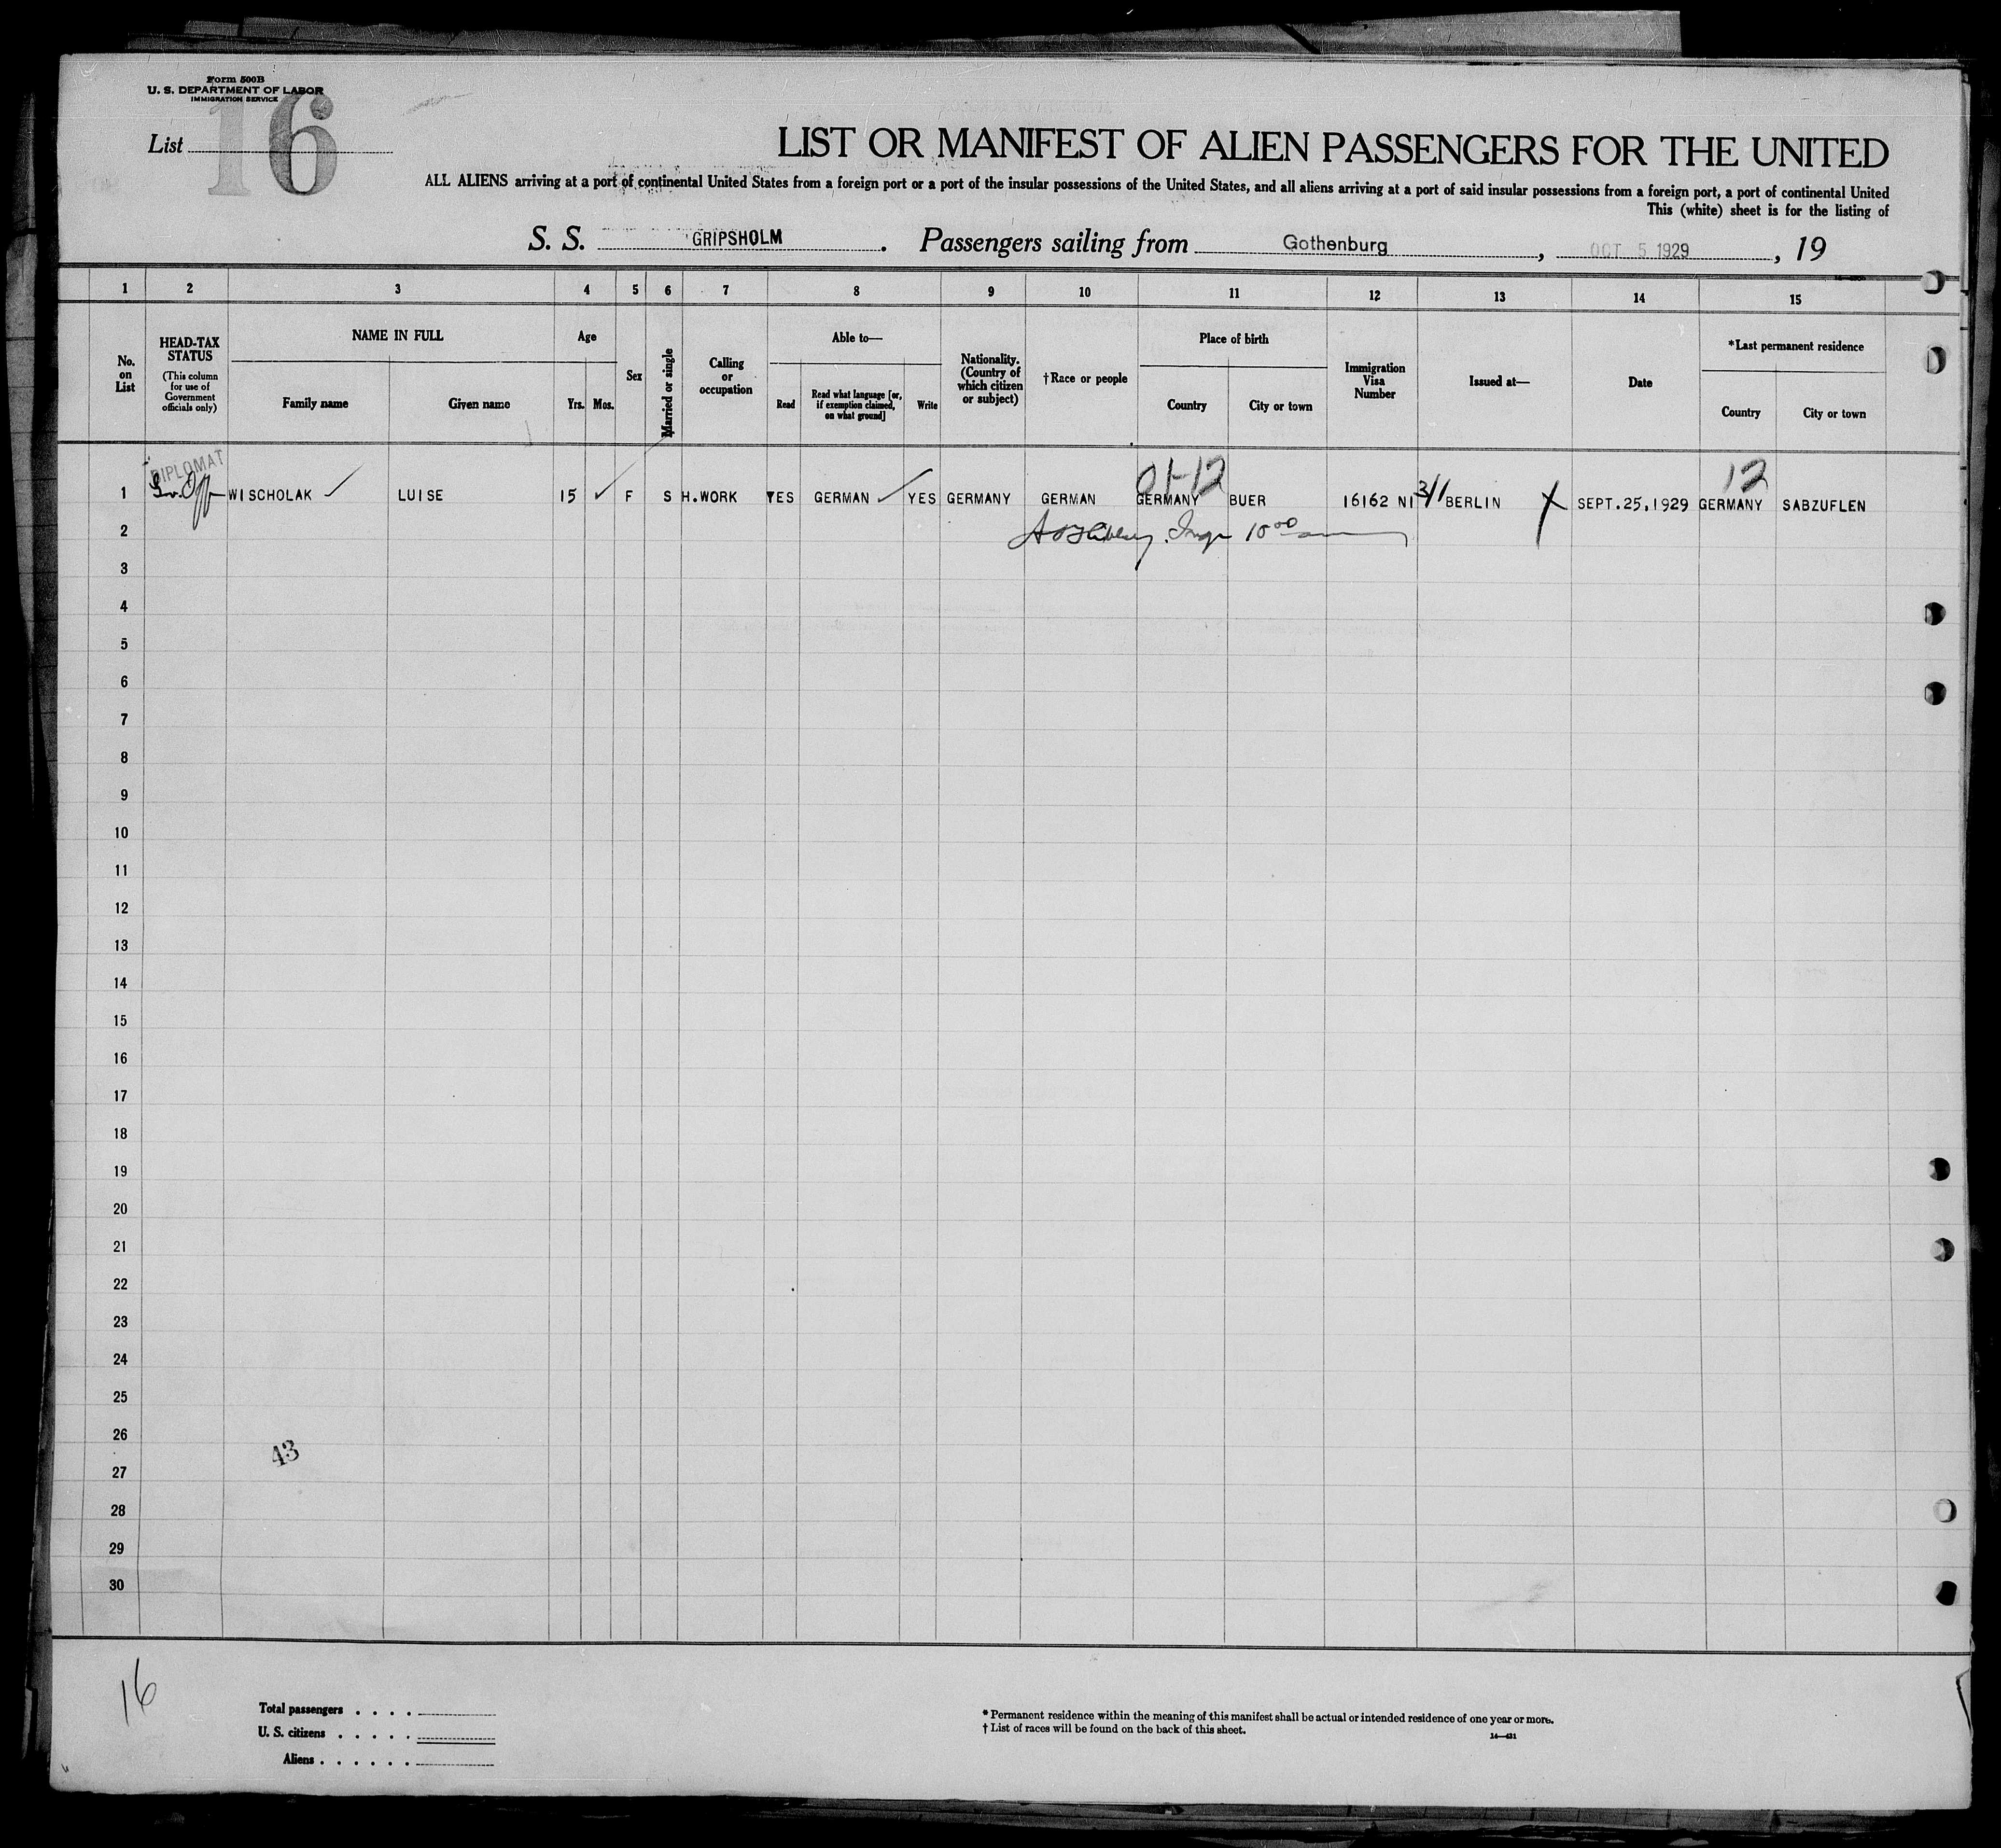 Form 500B
U. S. DEPARTMENT OF LABOR
IMMIGRATION SERVICE
List 16
LIST OR MANIFEST OF ALIEN PASSENGERS FOR THE UNITED
ALL ALIENS arriving at a port of continental United States from a foreign port or a port of the insular possessions of the United States, and all aliens arriving at a port of said insular possessions from a foreign port, a port of continental United
This (white) sheet is for the listing of
S. S. GRIPSHOLM. Passengers sailing from Gothenburg, OCT 5 1929, 19
1 2 3 4 5 6 7 8 9 10 11 12 13 14 15
No. on List
HEAD-TAX STATUS
(This column for use of Government officials only)
NAME IN FULL
Family name Given name
Age
Yrs. Mos.
Sex
Married or single
Calling or occupation
Able to—
Read
Read what language [or, if exemption claimed, on what ground]
Write
Nationality. (Country of which citizen or subject)
†Race or people
Place of birth
Country City or town
Immigration Visa Number
Issued at—
Date
*Last permanent residence
Country City or town
DIPLOMAT
01-12 12
1 WISCHOLAK LUISE 15 F S H.WORK YES GERMAN YES GERMANY GERMAN GERMANY BUER 16162 NI 3/1 BERLIN SEPT.25,1929 GERMANY SABZUFLEN
2
3
4
5
6
7
8
9
10
11
12
13
14
15
16
17
18
19
20
21
22
23
24
25
26
43
27
28
29
30
16
Total passengers . . . .
U. S. citizens . . . . .
Aliens . . . . . .
* Permanent residence within the meaning of this manifest shall be actual or intended residence of one year or more.
† List of races will be found on the back of this sheet.